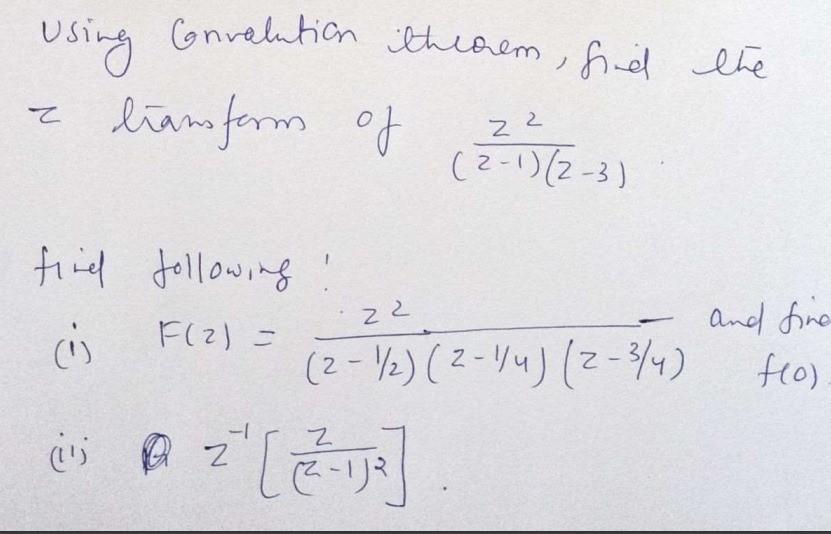 Using Convolution theorem, find the
z transform of z²/((z-1)(z-3)).
find following:
(i) F(z) = z²/((z-1/2)(z-1/4)(z-3/4)) and find f(0).
(ii) z⁻¹[z/(z-1)²].